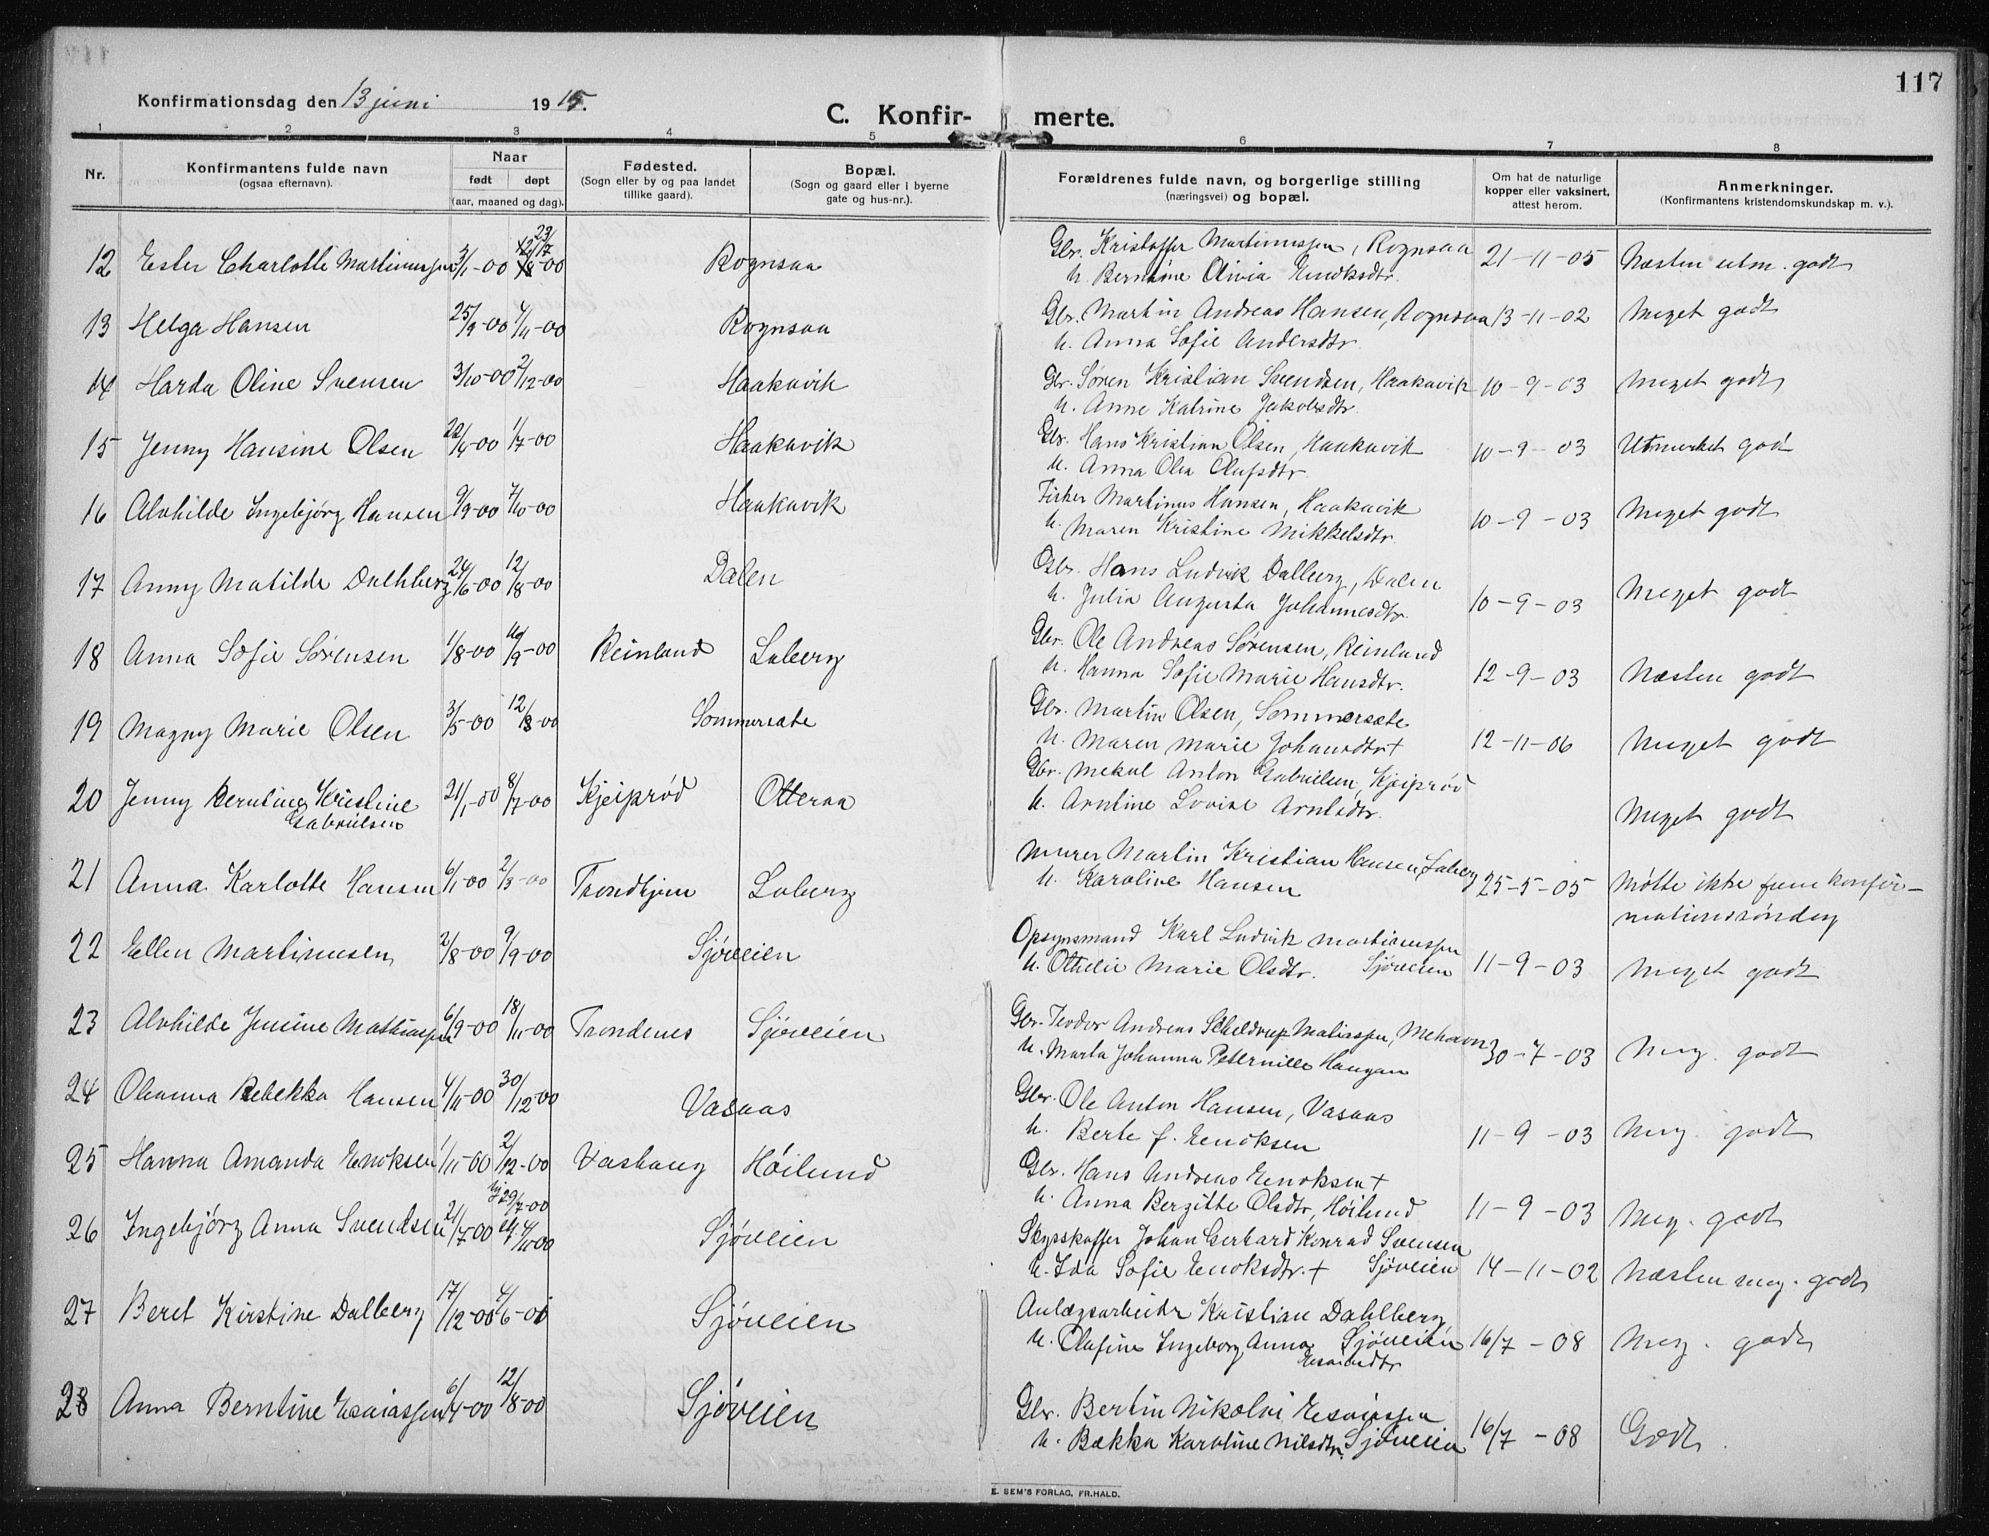 117
Konfirmationsdag den 13 juni 1915.
C. Konfir- merte.
1 2 3 4 5 6 7 8
Nr.
Konfirmantens fulde navn
(ogsaa efternavn).
Naar
født døpt
(aar, maaned og dag).
Fødested.
(Sogn eller by og paa landet
tillike gaard).
Bopæl.
(Sogn og gaard eller i byerne
gate og hus-nr.).
Forældrenes fulde navn, og borgerlige stilling
(næringsvei) og bopæl.
Om hat de naturlige
kopper eller vaksinert,
attest herom.
Anmerkninger.
(Konfirmantens kristendomskundskap m. v.).
12 Ester Charlotte Martinussen 3/1-00 Rognsaa Gbr. Kristoffer Martinussen, Rognsaa 21-11-05 Næsten utm. godt
h. Berntine Olivia Enoksdtr.
13 Helga Hansen 25/9-00 4/11-00 Rognsaa Gbr. Martin Andreas Hansen, Rognsaa 13-11-02 Meget godt
h. Anna Sofie Andersdtr.
14 Harda Oline Svensen 3/10-00 2/12-00 Haakavik Gbr. Søren Kristian Svendsen, Haakavik 10-9-03 Meget godt
h. Anne Katrine Jakobsdtr.
15 Jenny Hansine Olsen 22/4-00 1/7-00 Haakavik Gbr. Hans Kristian Olsen, Haakavik 10-9-03 Utmerket god
h. Anna Olea Olufsdtr.
16 Alvhilde Ingebjørg Hansen 9/9-00 7/10-00 Haakavik Fisker Martinus Hansen, Haakavik 10-9-03 Meget godt
h. Maren Kristine Mikkelsdtr.
17 Anny Matilde Dalhberg 24/6-00 12/8-00 Dalen Gbr. Hans Ludvik Dalberg, Dalen 10-9-03 Meget godt
h. Julia Augusta Johannesdtr.
18 Anna Sofie Sørensen 1/8-00 16/9-00 Reinland Laberg Gbr. Ole Andreas Sørensen, Reinland 12-9-03 Næsten godt
h. Hanna Sofie Marie Hansdtr.
19 Magny Marie Olsen 3/5-00 12/8-00 Sommersæte Gbr. Martin Olsen, Sommersæte 12-11-06 Meget godt
h. Maren Marie Johansdtr +
20 Jenny Berntine Kristine 21/1-00 8/7-00 Kjeiprød Otteraa Gbr. Mekal Anton Gabrielsen, Kjeiprød Meget godt
Gabrielsen h. Arntine Lovise Arntsdtr.
21 Anna Karlotte Hansen 6/1-00 2/3-00 Trondhjem Laberg Murer Martin Kristian Hansen, Laberg 25-5-05 Møtte ikke frem konfir-
h. Karoline Hansen mationssøndag
22 Ellen Martinusen 2/8-00 9/9-00 Sjøveien Opsynsmand Karl Ludvik Martinussen 11-9-03 Meget godt
h. Othelie Marie Olsdtr. Sjøveien
23 Alvhilde Jensine Mathiassen 6/9-00 18/11-00 Trondenes Sjøveien Gbr. Teodor Andreas Scheldrup Matiassen, Mehavn 30-7-03 Meg. godt
h. Marta Johanna Peternille Haugan
24 Oleanna Rebekka Hansen 4/11-00 30/12-00 Vasaas Gbr. Ole Anton Hansen, Vasaas 11-9-03 Meg. godt
h. Berte f. Enoksen
25 Hanna Amanda Enoksen 1/11-00 2/12-00 Vashaug Høilund Gbr. Hans Andreas Enoksen + 11-9-03 Meg. godt
h. Anna Bergitte Olsdtr, Høilund
26 Ingebjørg Anna Svendsen 2/7-00 hj 29/7-00 Sjøveien Skysskaffer Johan Gerhard Konrad Svensen 14-11-02 Næsten meg. godt
4/11-00 h. Ida Sofie Enoksdtr. + Sjøveien
27 Beret Kirstine Dalberg 17/12-00 4/6-01 Sjøveien Anlægsarbeider Kristian Dahlberg, 16/7-08 Meg. godt
h. Olufine Ingeborg Anna Sjøveien
28 Anna Berntine Esaiassen 6/4-00 12/8-00 Sjøveien Gbr. Bertin Nikolai Esaiassen 16/7-08 Godt.
h. Bekka Karoline Nilsdtr. Sjøveien
E. SEM'S FORLAG, FR.HALD.